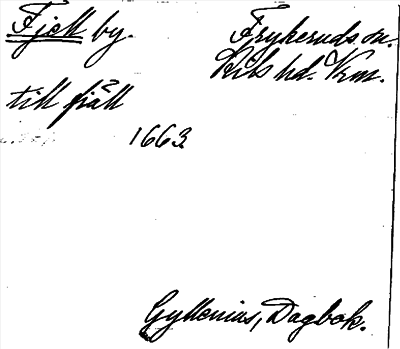 Fjell by.
Frykeruds sn.
Kils hd. Vrm.
till fiäll
1663
Gyllenius, Dagbok.